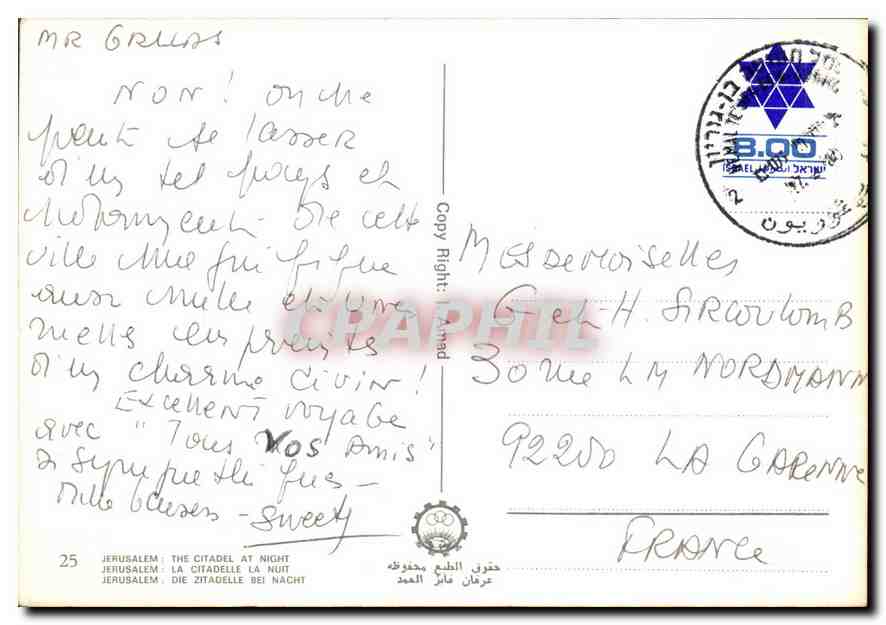 NON! on ne
peut se lasser
d'un tel pays et
notamment de cette
ville magnifique
aux mille et une
d'un charme divin!
Excellent voyage
avec "Tous vos amis"
si sympathiques -
Mille baisers - Sweety
Mesdemoiselles
G et H. SIRCOULOMB
30 rue LM NORDMANN
92200 LA GARENNE
FRANCE
Copy Right: I. Amad
8.00
ISRAEL ישראל
בן-גוריון
2
CPAPHIL
25
JERUSALEM : THE CITADEL AT NIGHT
JERUSALEM : LA CITADELLE LA NUIT
JERUSALEM : DIE ZITADELLE BEI NACHT
حقوق الطبع محفوظه
عرفان فايز العمد